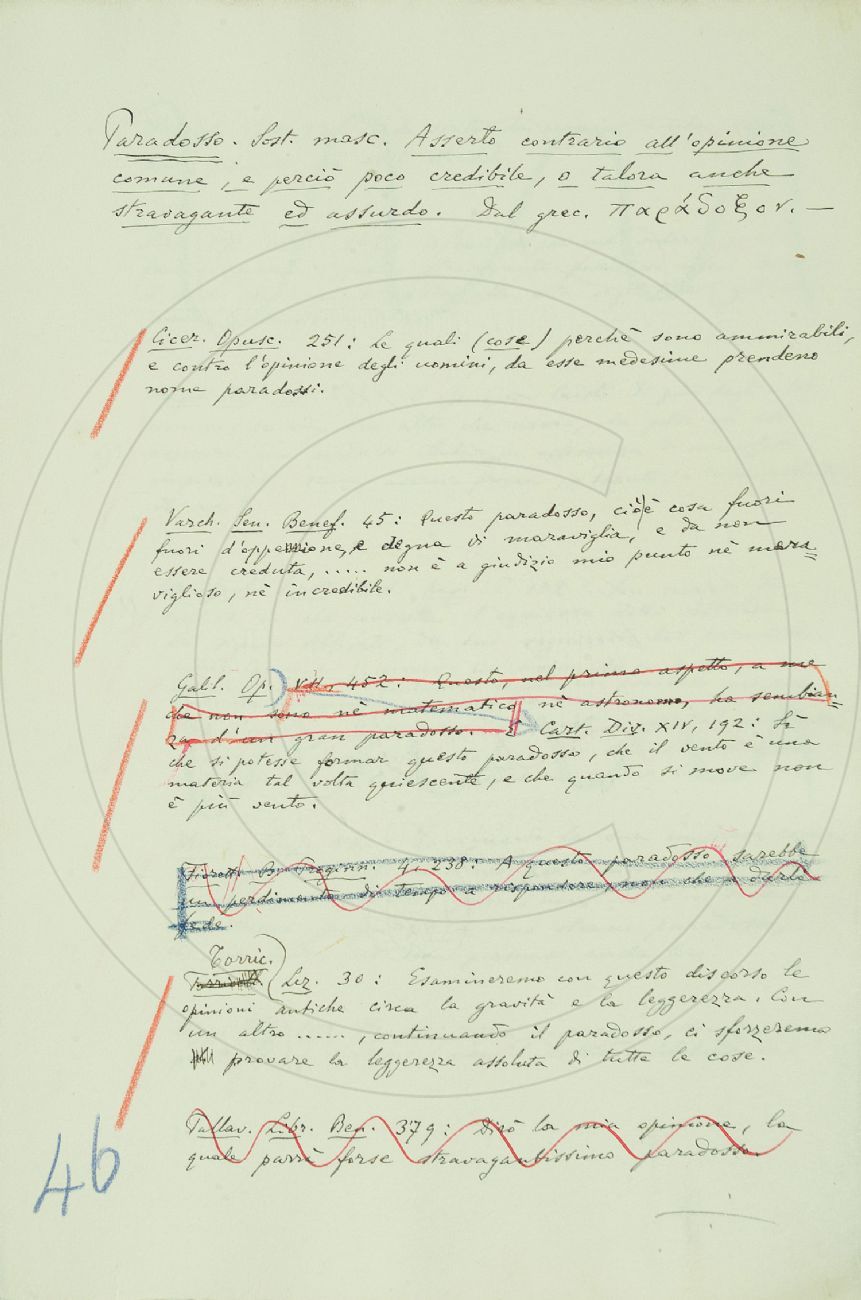 Paradosso. Sost. masc. Asserto contrario all'opinione
comune, e perciò poco credibile, o talora anche
stravagante ed assurdo. Dal grec. παράδοξον. —
Cicer. Opusc. 251: Le quali (cose) perchè sono ammirabili,
e contro l'opinione degli uomini, da esse medesime prendeno
nome paradossi.
Varch. Sen. Benef. 45: Questo paradosso, cioè cosa fuori
fuori d'oppenione, e degna di maraviglia, e da non
essere creduta, ..... non è a giudizio mio punto nè mara=
viglioso, nè incredibile.
Galil. Op. VII, 452: Questo, nel primo aspetto, a me
che non sono nè matematico nè astronomo, ha sembian=
za d'un gran paradosso. E Cart. Div. XIV, 192: Sì
che si potesse formar questo paradosso, che il vento è una
materia tal volta quiescente, e che quando si move non
è più vento.
Fioretti B. Proginn. 4, 238: A questo paradosso sarebbe
un perdimento di tempo a rispondere, non che a darle
fede.
Torric.
Lez. 30: Esamineremo con questo discorso le
opinioni antiche circa la gravità e la leggerezza. Con
un altro ....., continuando il paradosso, ci sforzeremo
provare la leggerezza assoluta di tutte le cose.
Pallav. Libr. Ben. 379: Dirò la mia opinione, la
quale parrà forse stravagantissimo paradosso.
46